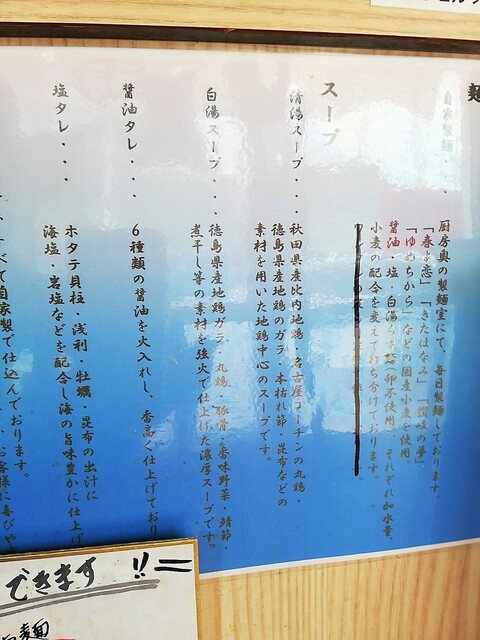 麺
自家製麺・・・・
厨房奥の製麺室にて、毎日製麺しております。
「春よ恋」「きたほなみ」「讃岐の夢」
「ゆめちから」などの国産小麦を使用。
醤油・塩・白湯
(卵不使用
それぞれ加水量、
小麦の配合を変えて打ち分けております。
スープ
清湯スープ・・・
秋田県産比内地鶏・名古屋コーチンの丸鶏・
徳島県産地鶏のガラ・本枯れ節・昆布などの
素材を用いた地鶏中心のスープです。
白湯スープ・・・
徳島県産地鶏ガラ・丸鶏・豚骨・香味野菜・鯖節・
煮干し等の素材を強火で仕上げた濃厚スープです。
醤油タレ・・・
6種類の醤油を火入れし、香高く仕上げており
塩タレ・・・
ホタテ貝柱・浅利・牡蠣・昆布の出汁に
海塩・岩塩などを配合し海の旨味豊かに仕上げ
べて自家製で仕込んでおります。
お客様に喜びや
できます!!
麺